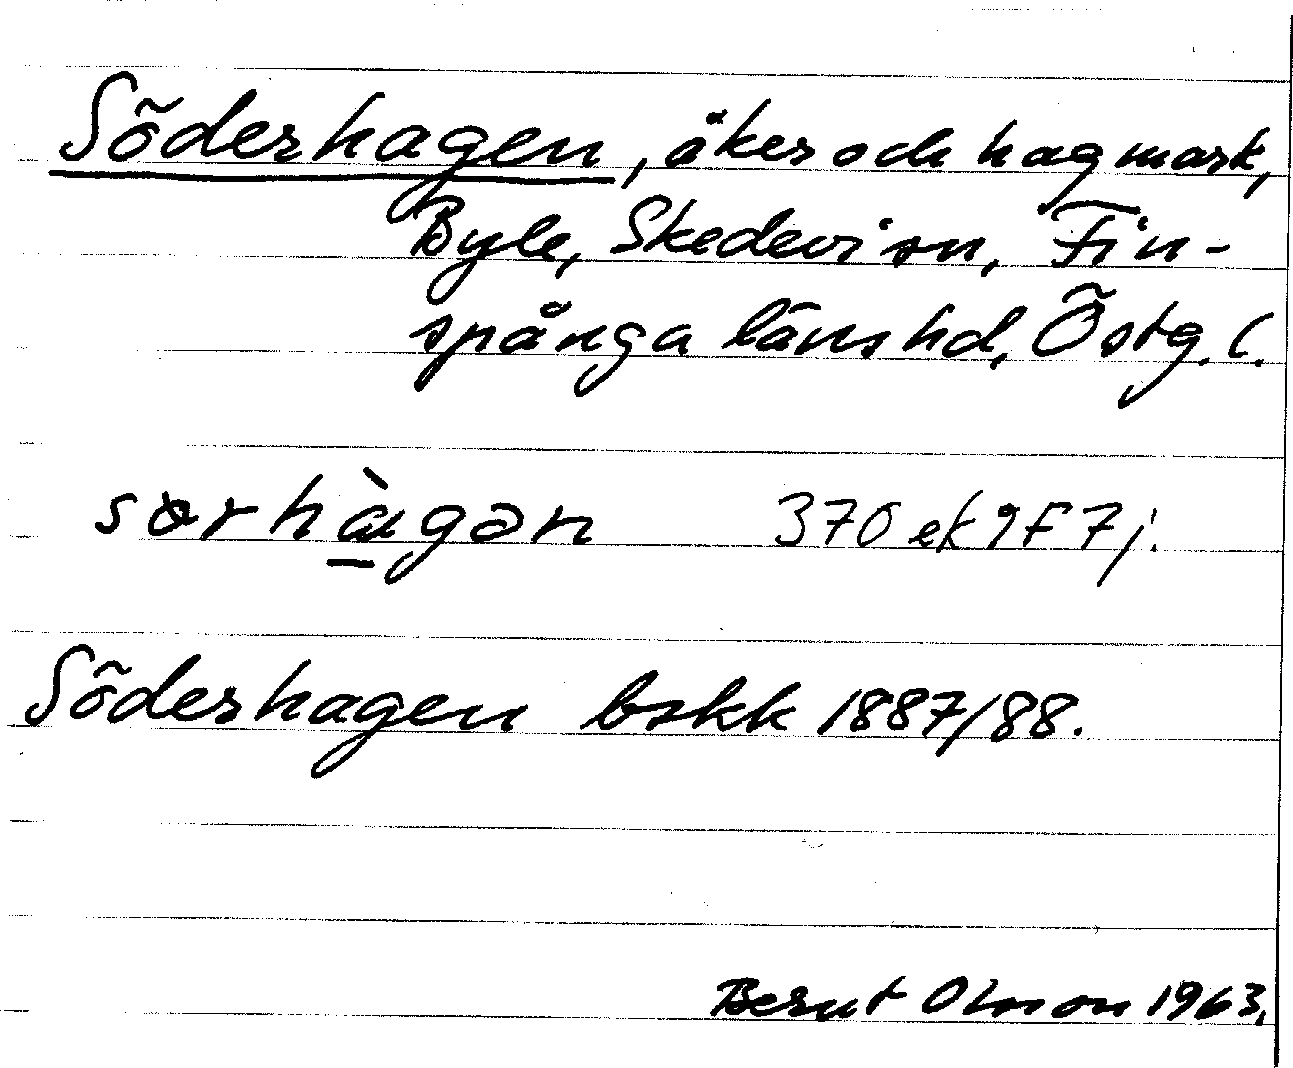 Söderhagen, åker och hagmark,
Byle, Skedevi sn, Fin-
spånga läns hd, Östg. l.
370 ek 9F 7j.
Söderhagen bskk 1887/88.
Bernt Olsson 1963.